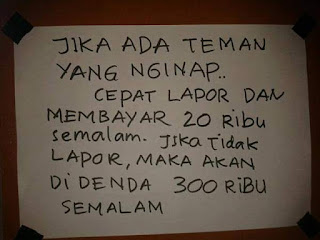 JIKA ADA TEMAN
YANG NGINAP..
CEPAT LAPOR DAN
MEMBAYAR 20 RIBU
semalam. JIKA TIdak
LAPOR, MAKA AKAN
Di DENDA 300 RiBU
SEMALAM